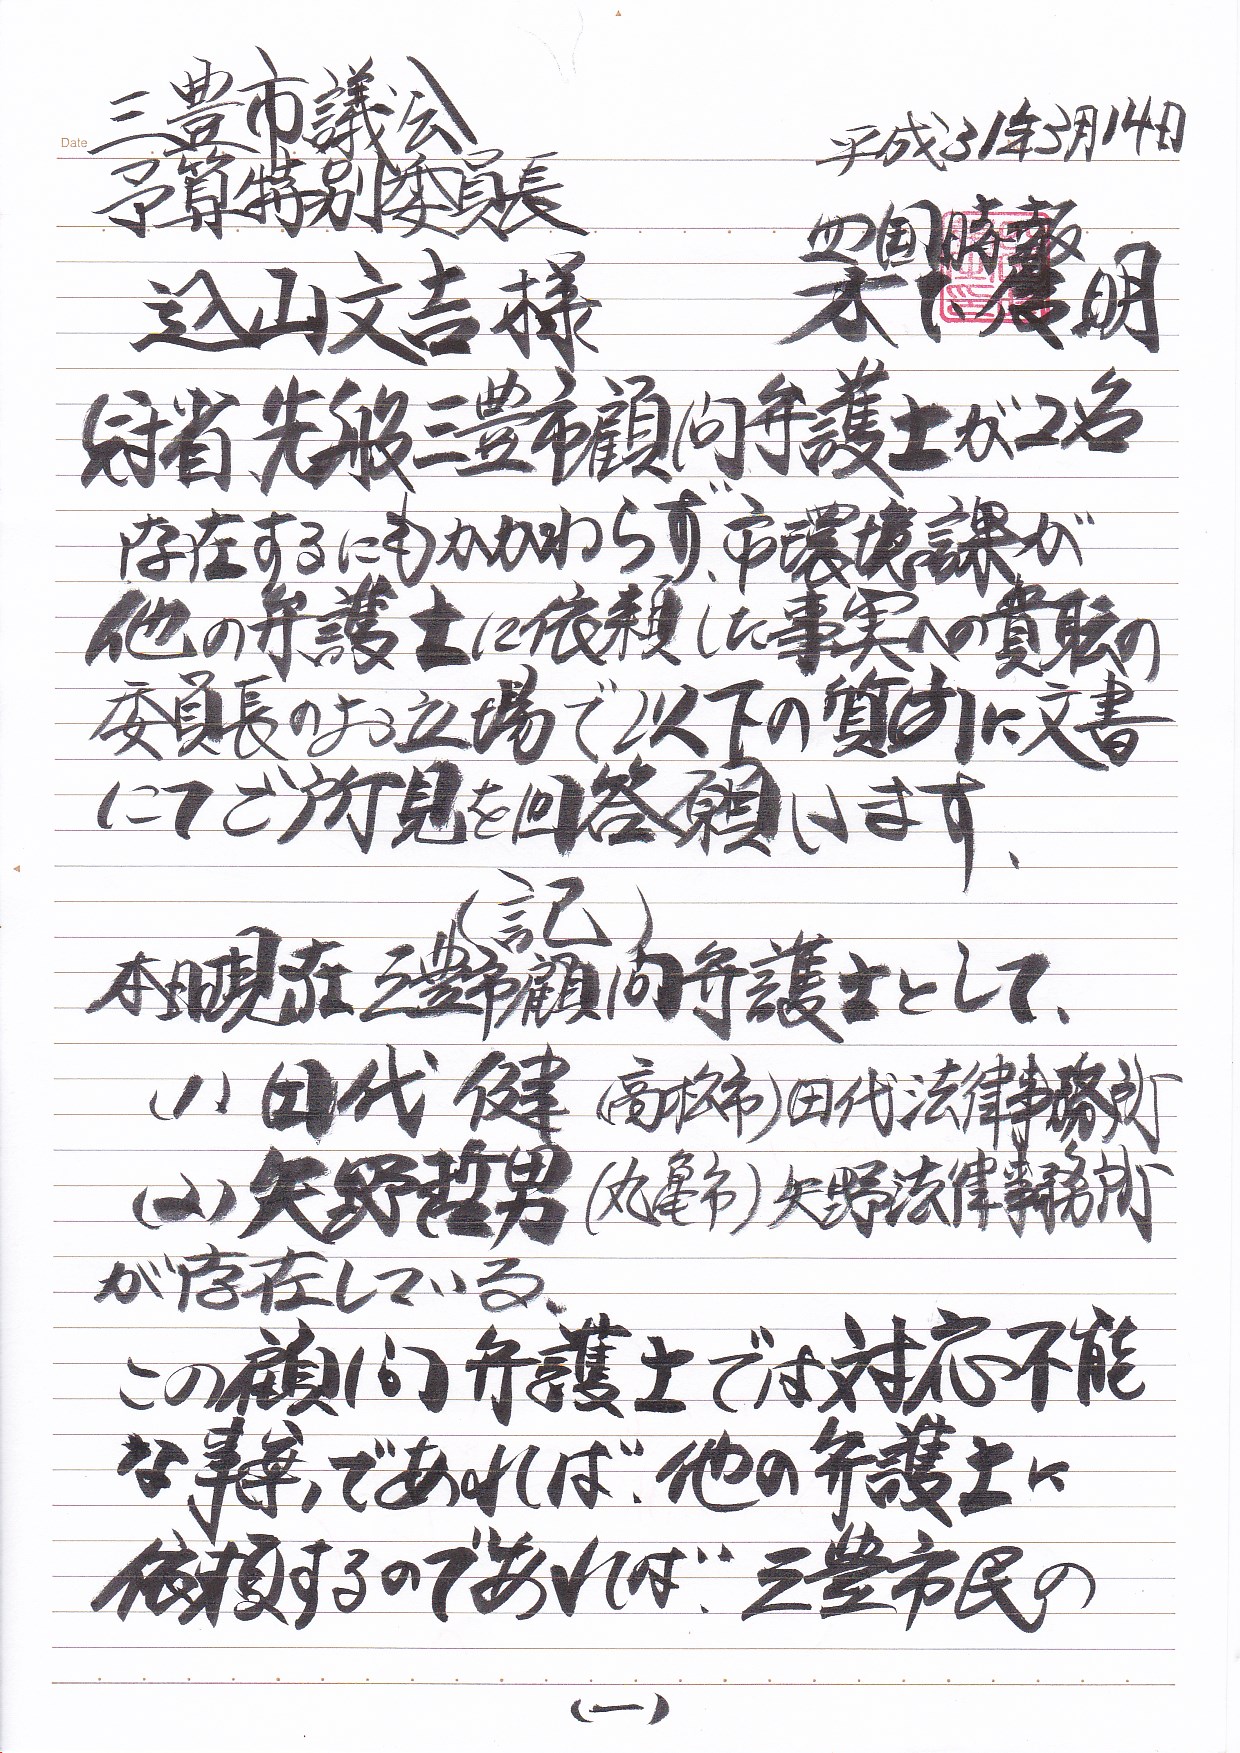 Date
三豊市議会
平成31年3月14日
予算特別委員長
四国時報
込山文吉様
木下俊明
前省 先般三豊市顧問弁護士が2名
存在するにもかかわらず、市環境課が
他の弁護士に依頼した事実への貴殿の
委員長のお立場で以下の質問に文書
にてご所見を回答願います、
(記)
本日現在三豊市顧問弁護士として、
(1) 田代 健 (高松市)田代法律事務所
(2) 矢野哲男 (丸亀市)矢野法律事務所
が存在している、
この顧問弁護士では対応不能
な事案であれば、他の弁護士に
依頼するのであれば、三豊市民の
(一)